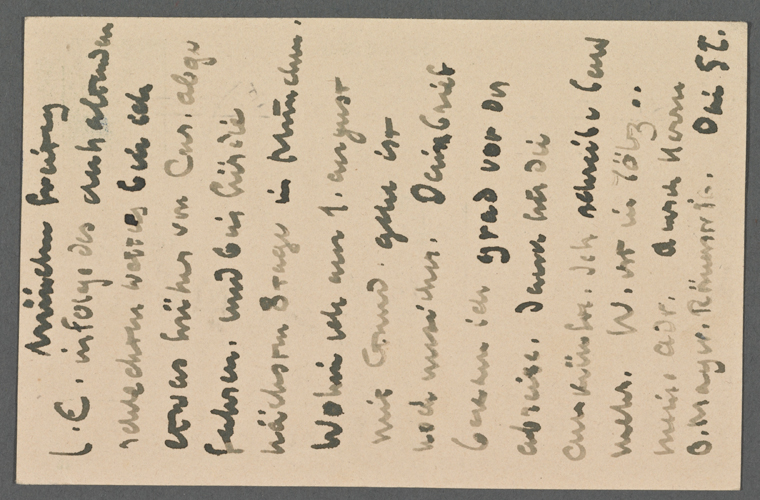 München Freitag
L.E. infolge des anhaltenden
schlechten Wetters bin ich
etwas früher von Cus. abge
fahren. und bin für die
nächsten 8 Tage in München.
Wohin ich am 1. August
mit Gmund. gehe ist
noch unsicher. Dein Brief
bekam ich grad vor der
abreise. Danke für die
Auskünfte. Ich schreibe bald
mehr. W. ist in Tölz..
meine adr. durch Herrn
O. Mayr. Römerstr. Dein